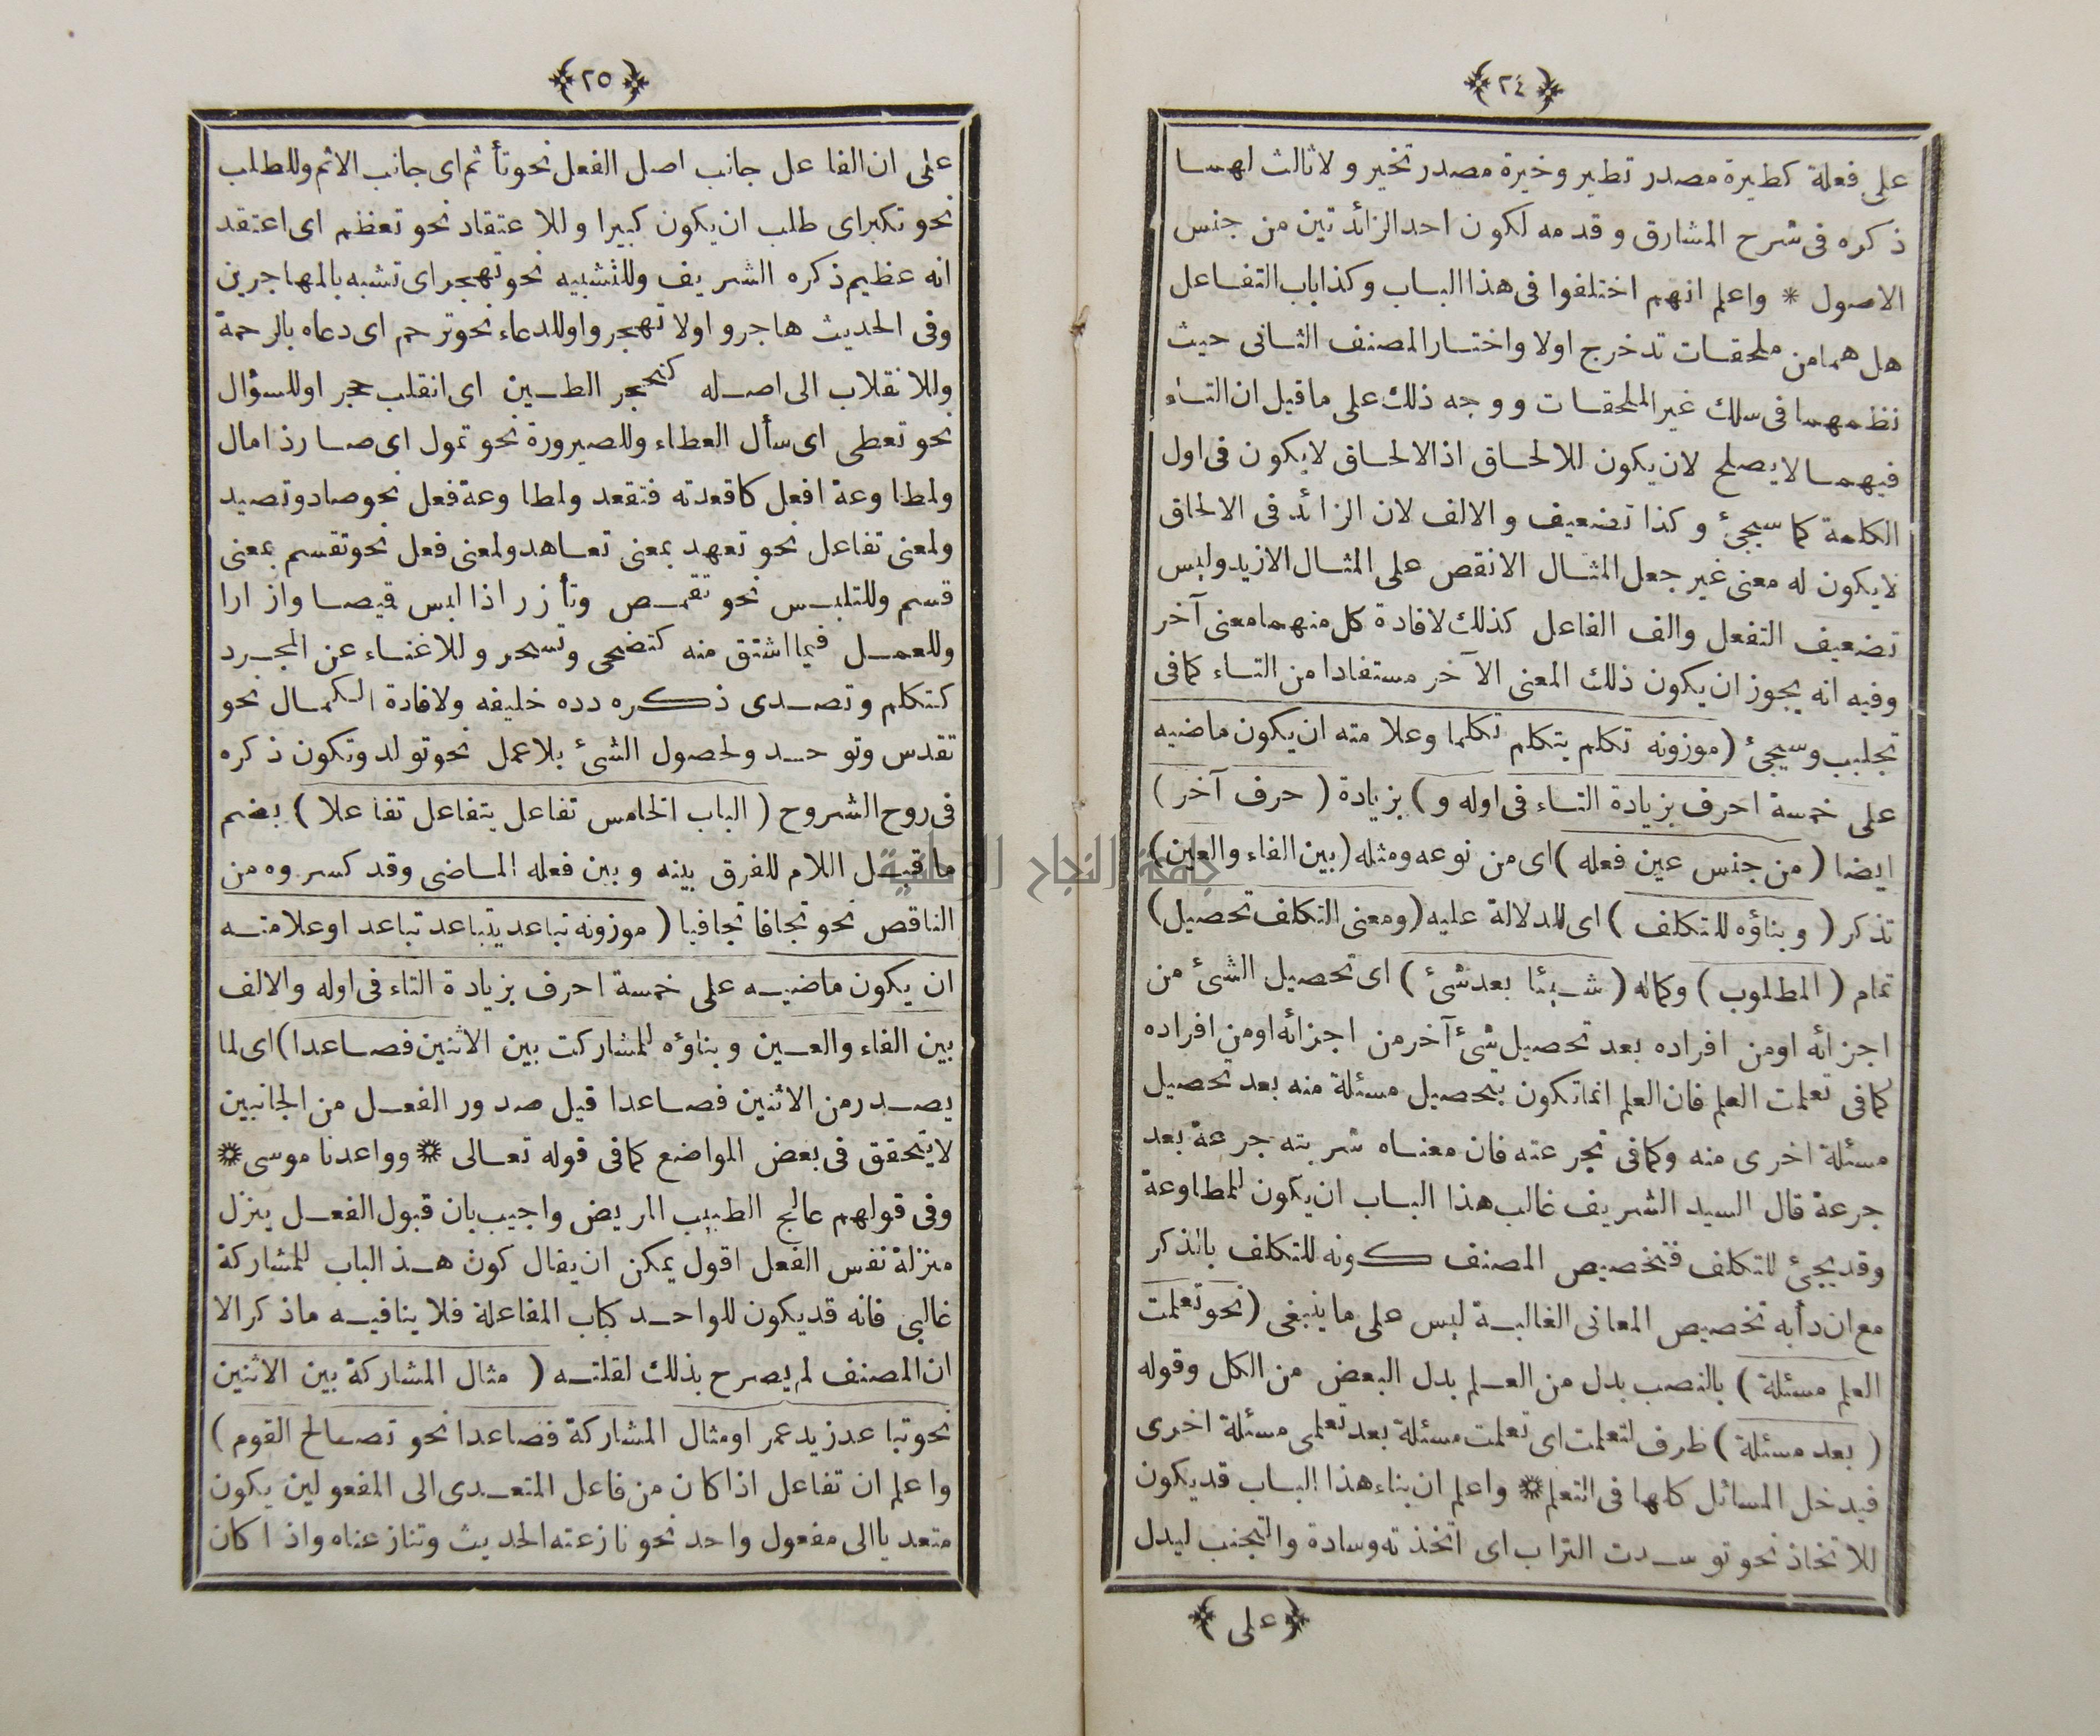 ﴿٢٤﴾
على فعلة كطيرة مصدر تطير وخيرة مصدر تخير ولا ثالث لهما
ذكره فى شرح المشارق وقدمه لكون احد الزائدتين من جنس
الاصول * واعلم انهم اختلفوا فى هذا الباب وكذا باب التفاعل
هل هما من ملحقات تدخرج اولا واختار المصنف الثانى حيث
نظمهما فى سلك غير الملحقات ووجه ذلك على ما قيل ان التاء
فيهما لا يصلح لان يكون للالحاق اذ الالحاق لا يكون فى اول
الكلمة كما سيجئ وكذا تضعيف والالف لان الزائد فى الالحاق
لا يكون له معنى غير جعل المثال الانقص على المثال الازيد وليس
تضعيف التفعل والف الفاعل كذلك لافادة كل منهما معنى آخر
وفيه انه يجوز ان يكون ذلك المعنى الآخر مستفادا من التاء كما فى
تجلبب وسيجئ (موزونه تكلم يتكلم تكلما وعلامته ان يكون ماضيه
على خمسة احرف بزيادة التاء فى اوله و) بزيادة (حرف آخر)
ايضا (من جنس عين فعله) اى من نوعه ومثله (بين الفاء والعين)
تذكر (وبناؤه للتكلف) اى للدلالة عليه (ومعنى التكلف تحصيل)
تمام (المطلوب) وكماله (شيئا بعد شئ) اى تحصيل الشئ من
اجزائه اومن افراده بعد تحصيل شئ آخر من اجزائه اومن افراده
كما فى تعلمت العلم فان العلم انما تكون بتحصيل مسئلة منه بعد تحصيل
مسئلة اخرى منه وكما فى تجرعته فان معناه شربته جرعة بعد
جرعة قال السيد الشريف غالب هذا الباب ان يكون للمطاوعة
وقد يجئ للتكلف فتخصيص المصنف كونه للتكلف بالذكر
مع ان دأبه تخصيص المعانى الغالبة ليس على ما ينبغى (نحو تعلمت
العلم مسئلة) بالنصب بدل من العلم بدل البعض من الكل وقوله
(بعد مسئلة) ظرف لتعلمت اى تعلمت مسئلة بعد تعلمى مسئلة اخرى
فيدخل المسائل كلها فى التعلم * واعلم ان بناء هذا الباب قد يكون
للاتخاذ نحو توسدت التراب اى اتخذته وسادة والتجنب ليدل
﴿على﴾
﴿٢٥﴾
على ان الفاعل جانب اصل الفعل نحو تأثم اى جانب الاثم وللطلب
نحو تكبر اى طلب ان يكون كبيرا وللاعتقاد نحو تعظم اى اعتقد
انه عظيم ذكره الشريف وللتشبيه نحو تهجر اى تشبه بالمهاجرين
وفى الحديث هاجروا ولا تهجروا وللدعاء نحو ترحم اى دعاه بالرحمة
وللانقلاب الى اصله كتحجر الطين اى انقلب حجر اوللسؤال
نحو تعطى اى سأل العطاء وللصيرورة نحو تمول اى صار ذا مال
ولمطاوعة افعل كاقعدته فتقعد ولمطاوعة فعل نحو صاد وتصيد
ولمعنى تفاعل نحو تعهد بمعنى تعاهد ولمعنى فعل نحو تقسم بمعنى
قسم وللتلبس نحو تقمص وتأزر اذا لبس قيصا وازارا
وللعمل فيما اشتق منه كتضحى وتسحر وللاغناء عن المجرد
كتكلم وتصدى ذكره دده خليفه ولافادة الكمال نحو
تقدس وتوحد ولحصول الشئ بلا عمل نحو تولد وتكون ذكره
فى روح الشروح (الباب الخامس تفاعل يتفاعل تفاعلا) بضم
ما قبل اللام للفرق بينه وبين فعله الماضى وقد كسروه من
الناقص نحو تجافا تجافيا (موزونه تباعد يتباعد تباعد اوعلامته
ان يكون ماضيه على خمسة احرف بزيادة التاء فى اوله والالف
بين الفاء والعين وبناؤه للمشاركت بين الاثنين فصاعدا) اى لما
يصدر من الاثنين فصاعدا قيل صدور الفعل من الجانبين
لا يتحقق فى بعض المواضع كما فى قوله تعالى * وواعدنا موسى *
وفى قولهم عالج الطبيب المريض واجيب بان قبول الفعل ينزل
منزلة نفس الفعل اقول يمكن ان يقال كون هذ الباب للمشاركة
غالبى فانه قد يكون للواحد كباب المفاعلة فلا ينافيه ما ذكر الا
ان المصنف لم يصرح بذلك لقلته (مثال المشاركة بين الاثنين
نحو تباعد زيد عمر اومثال المشاركة فصاعدا نحو تصالح القوم)
واعلم ان تفاعل اذا كان من فاعل المتعدى الى المفعولين يكون
متعديا الى مفعول واحد نحو نازعته الحديث وتنازعناه واذا كان
جامعة النجاح الوطنية